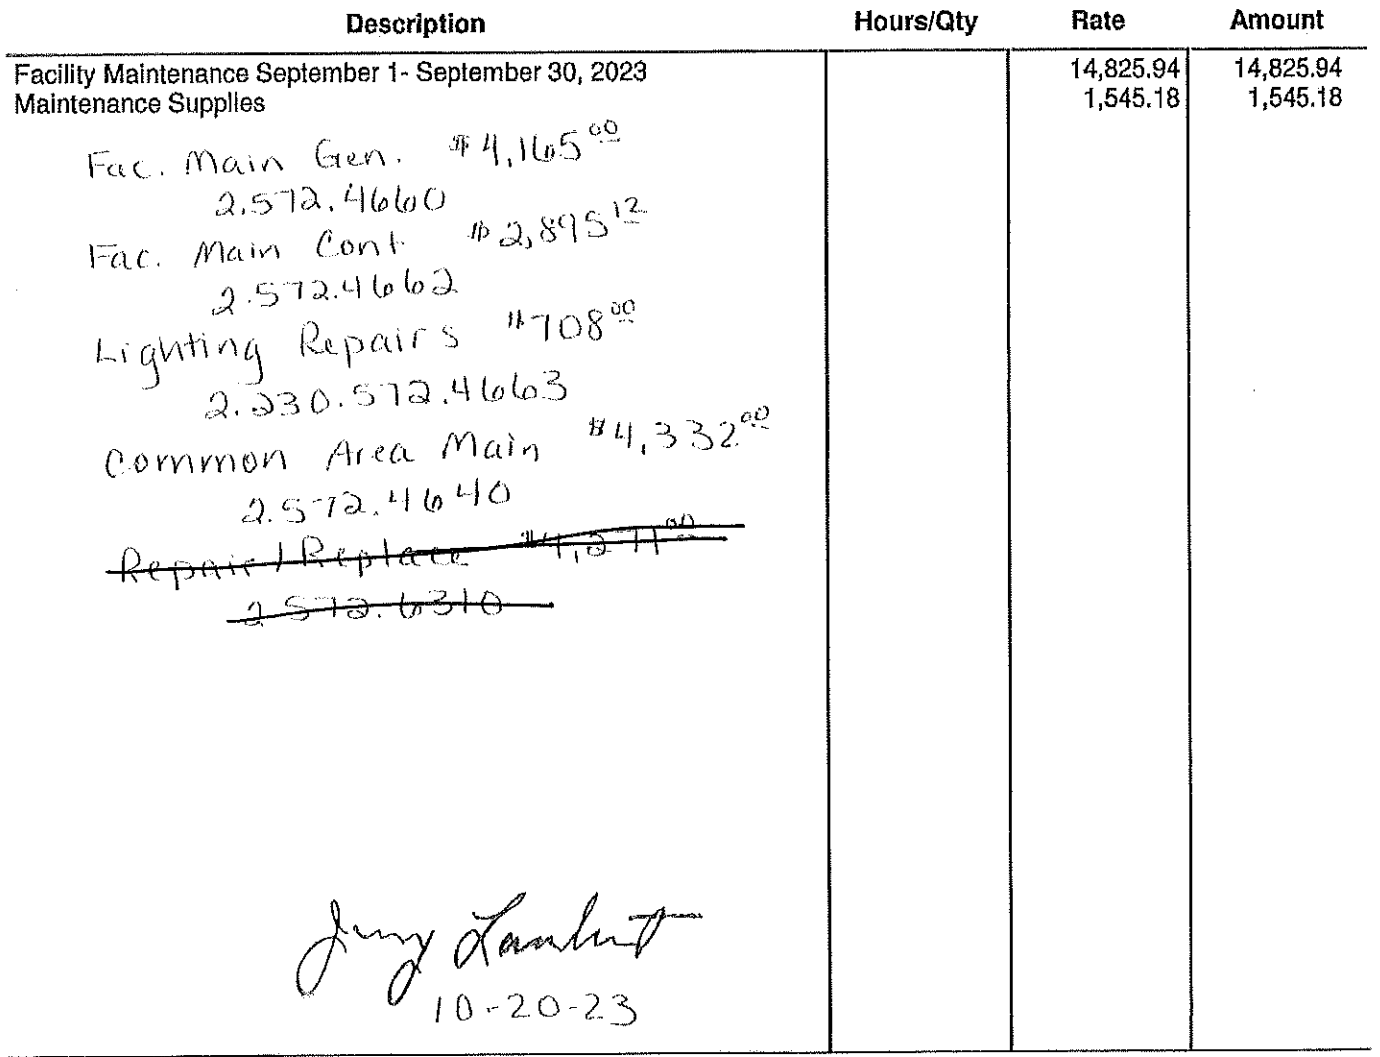 Description Hours/Qty Rate Amount
Facility Maintenance September 1- September 30, 2023 14,825.94 14,825.94
Maintenance Supplies 1,545.18 1,545.18
Fac. Main Gen. $4,165 00
2.572.4660
Fac. Main Cont. $2,895 12
2.572.4662
Lighting Repairs $708 00
2.330.572.4663
Common Area Main $4,332 00
2.572.4640
Repair/Replace $4,271 00
2.572.6310
Jerry Lambert
10-20-23